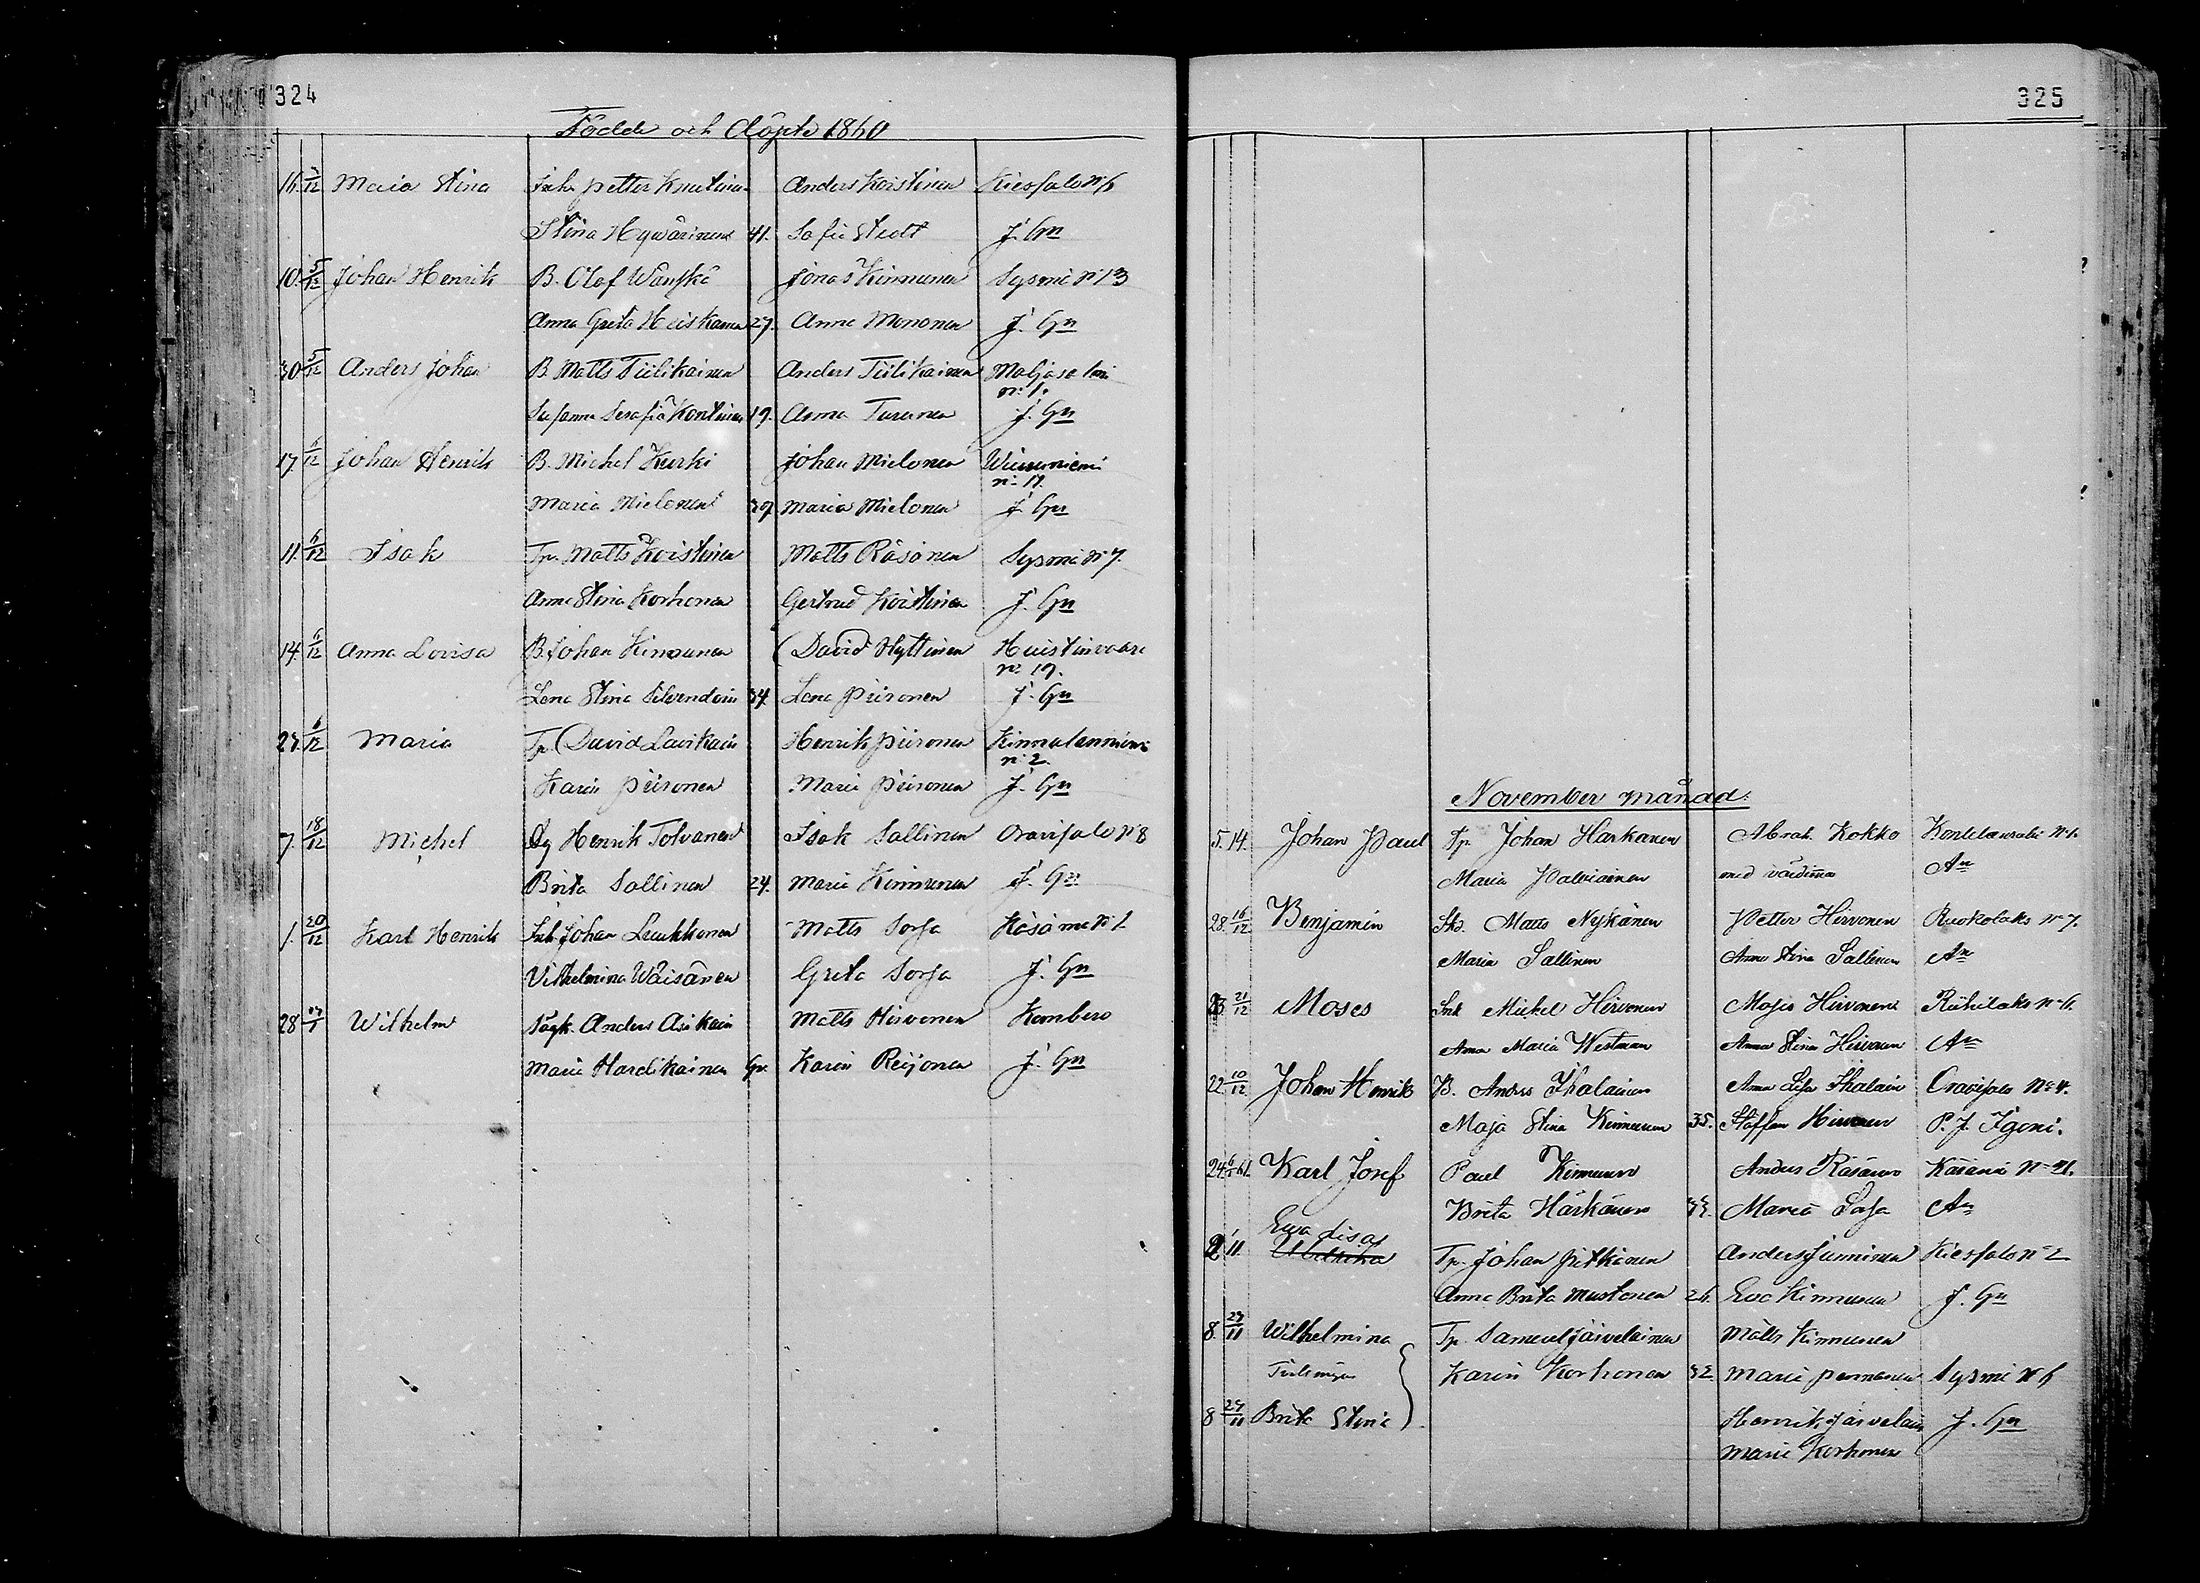 324
Födde och Döpte 1860
16. 3/12 Maria Stina Inh. Petter Knutinen Anders Koistinen Kiesfalo No 6
Stina Hywärinen 41. Sofia Stedt J. Gn
10. 5/12 Johan Henrik B. Olof Wänskä Jonas Kinnunen Sysmä No 13
Anna Greta Heiskanen 27. Anna Mononen J. Gn
30 5/12 Anders Johan B. Matts Tiilikainen Anders Tiilikainen Maljasalmi
No 1.
Susanna Serafia Kontinen 19. Anna Turunen J. Gn
17 6/12 Johan Henrik B. Michel Kurki Johan Mielonen Wiuruniemi
No 17.
Maria Mielonen 39 Maria Mielonen J. Gn
11. 6/12 Isak Tp. Matts Koistinen Matts Räsönen Sysmä No 7.
Anna Stina Korhonen Gertrud Koistinen J. Gn
14. 6/12 Anna Lovisa B. Johan Kinnunen David Hyttinen Huistinvaara
No 19.
Lena Stina Silvendoin 34. Lena Piironen J. Gn
23. 6/12 Maria Tp. David Lavikain Henrik Piironen Kinnalanniemi
No 2.
Karin Piironen Maria Piironen J. Gn
7. 18/12 Michel Dg Henrik Tolvanen Isak Sallinen Oravisalo No 8
Brita Sallinen 24. Maria Kinnunen J. Gn
1. 20/12 Karl Henrik Inh. Johan Luukkonen Matts Sorsa Käsämä No 2
Vilhelmina Wäisänen Greta Sorsa J. Gn
28 Wilhelm Sågk. Anders Asikain Matts Hirvonen Kombero
Maria Hardikainen Gr. Karin Reijonen J. Gn
325
November månad.
5. 14. Johan Paul Tp. Johan Harkonen Abrah. Kokko Kontilanvaara No 1.
Maria Palviainen med värdinna An
28. 16/12 Benjamin Matts Nykänen Petter Hirvonen Ruokolaks No 7.
Maria Sallinen Anna Stina Sallinen An
23 21/12 Moses Inh Mickel Hirvonen Moses Hirvonen Riihilaks No 6.
Anna Maria Westman Anna Stina Hirvonen An
22. 10/12 Johan Henrik B. Anders Ihalainen Anna Lisa Ihalain Oravisalo No 4.
Maja Stina Kinnunen 35. Staffan Hirvonen P. J. Igoni.
24. 61. Karl Josef Paul Kinnunen Anders Räsänen Käsämä No 41.
Brita Härkönen 33. Maria Sorsa An
Ewa Lisa
2 11 Tp. Johan Pitkänen Anders Junninen Kiesfalo No 2
Anna Brita Mustonen 26. Eva Kinnunen J. Gn
8. 29/11 Wilhelmina Tp. Samuel Järveläinen Matts Kinnunen
Tvillingar Karin Korhonen 32. Maria Pennanen Sysmä No 6
8 29/11 Brita Stina Henrik Järvelain J. Gn
Maria Korhonen